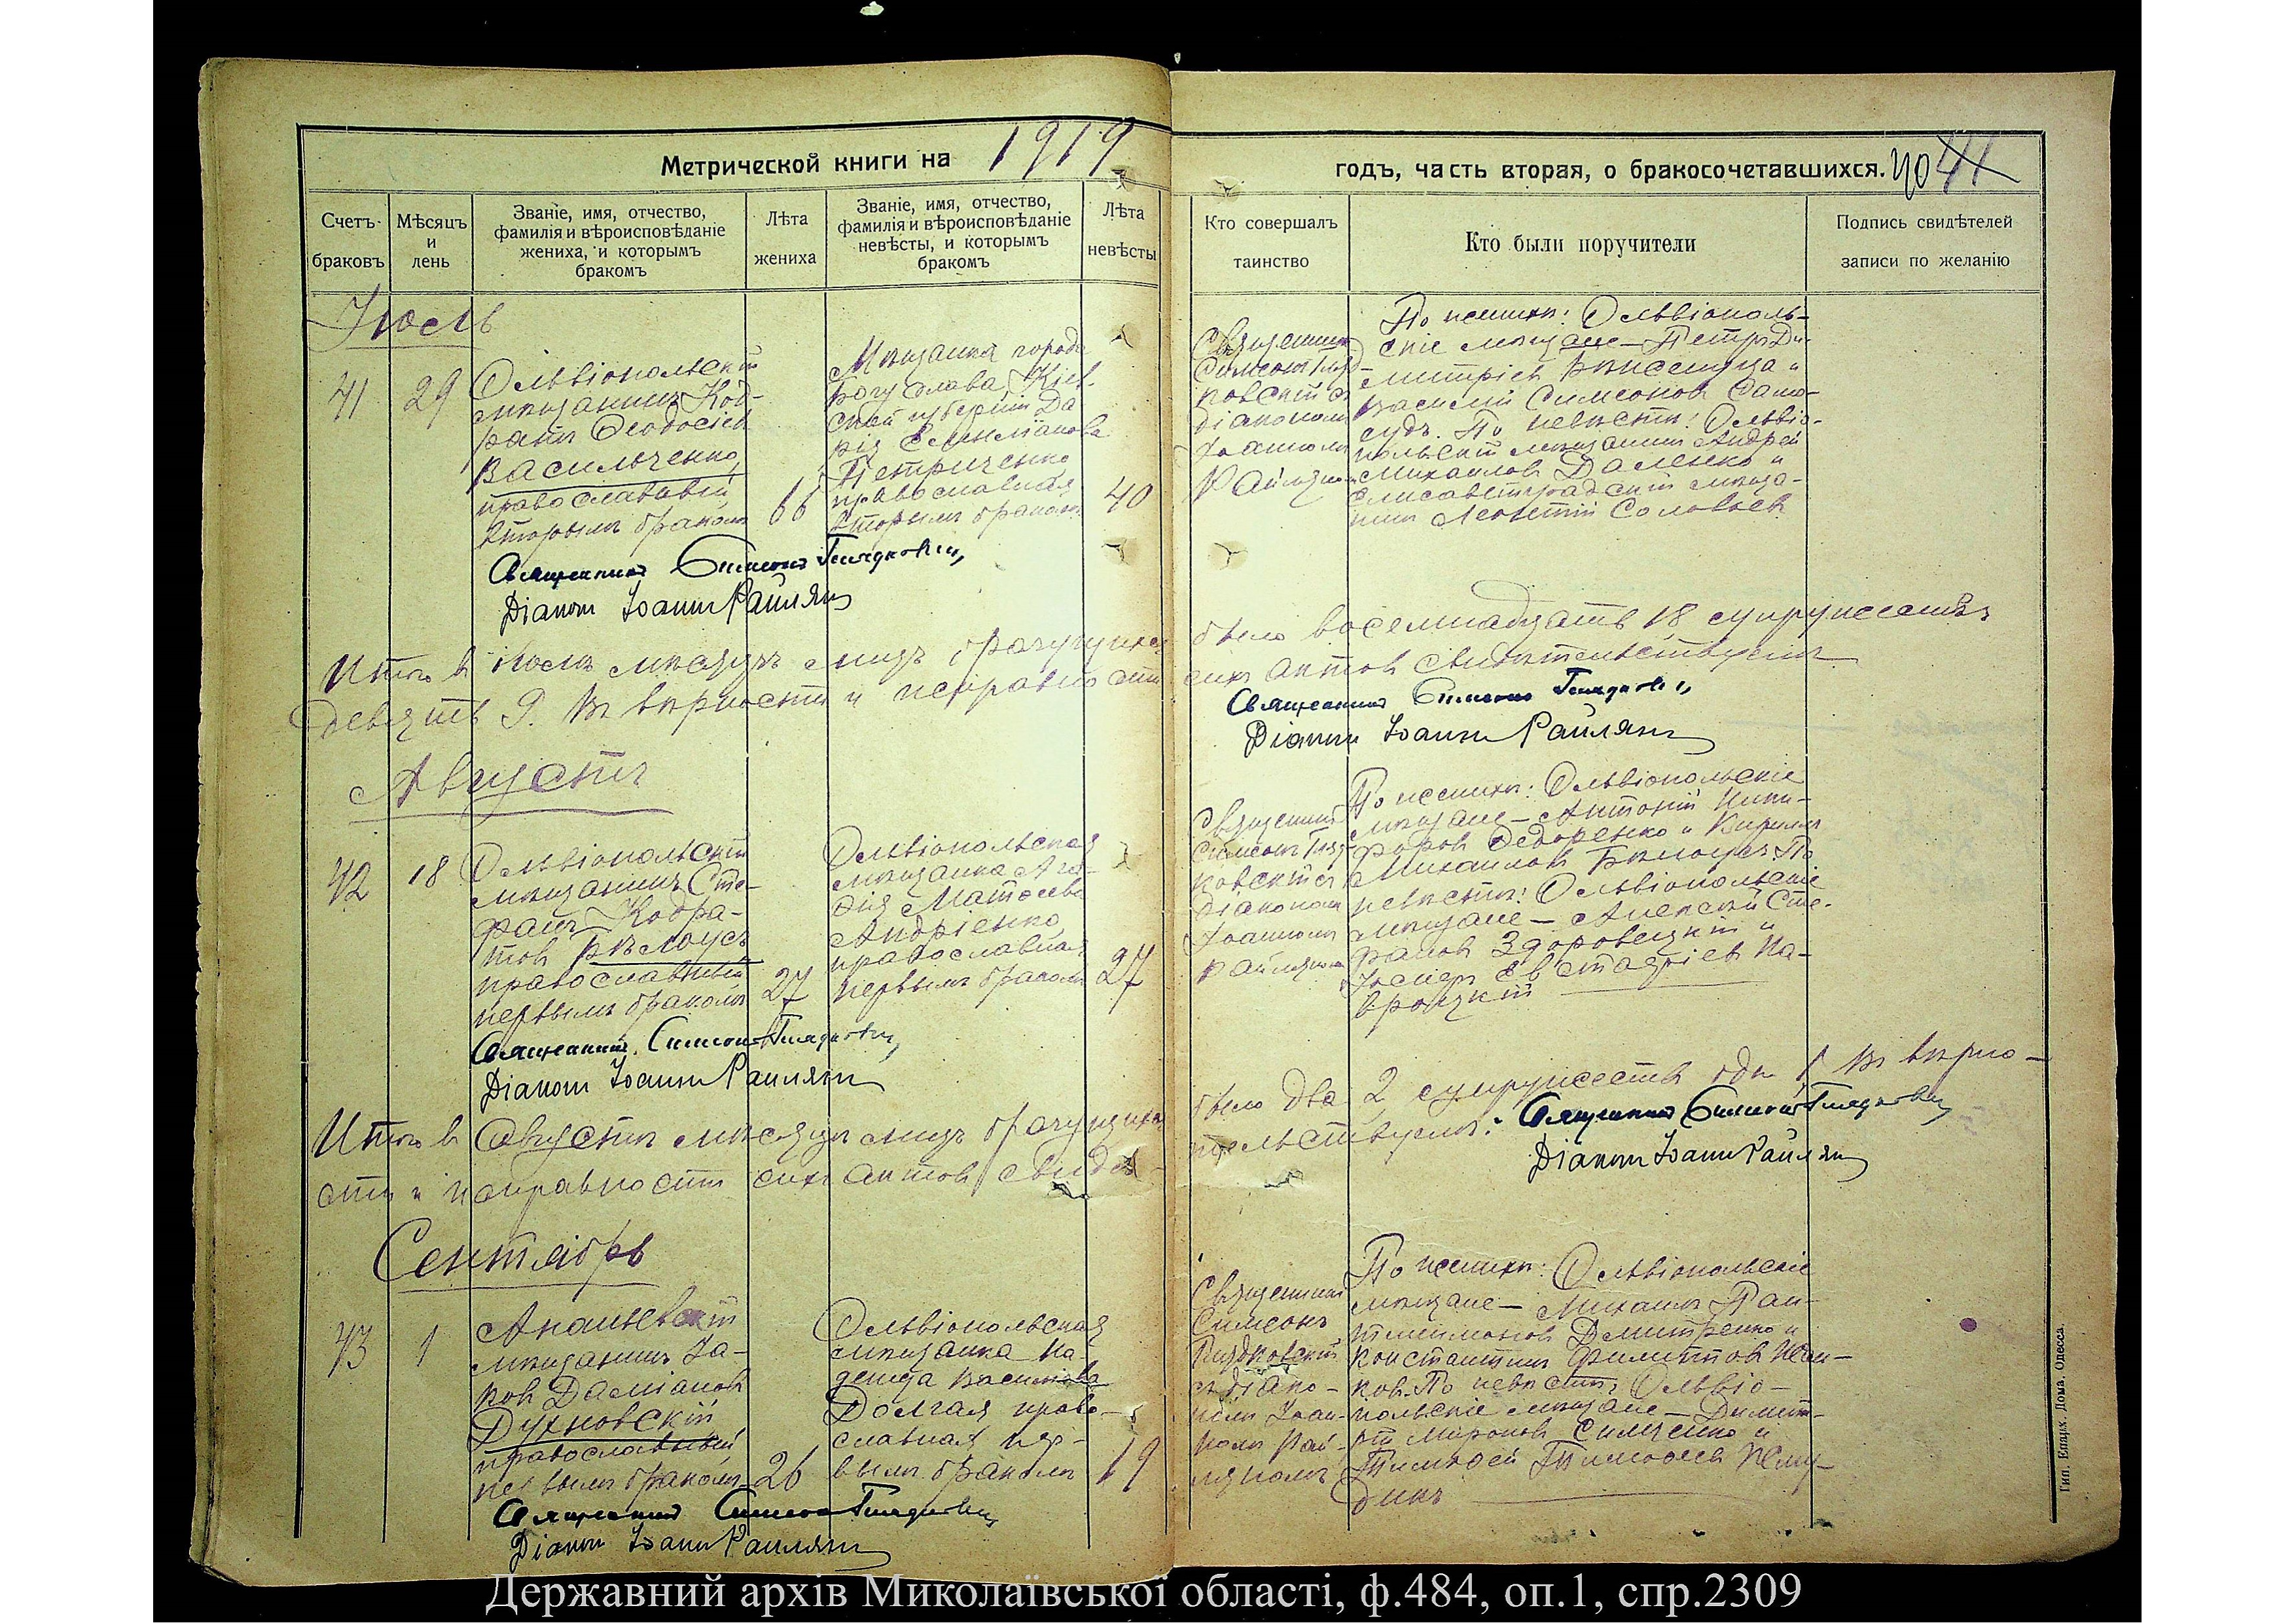 Метрической книги на 1919
годъ, часть вторая, о бракосочетавшихся. 40 41
Счетъ браковъ
Мѣсяцъ и день
Званіе, имя, отчество,
фамилія и вѣроисповѣданіе
жениха, и которымъ
бракомъ
Лѣта
жениха
Званіе, имя, отчество,
фамилія и вѣроисповѣданіе
невѣсты, и которымъ
бракомъ
Лѣта
невѣсты
Кто совершалъ
таинство
Кто были поручители
Подпись свидѣтелей
записи по желанію
Іюль
41
29
Ольвіопольскій
мѣщанинъ Код-
ратъ Ѳеодосіев
Васильченко,
православный
вторымъ бракомъ
66
Мѣщанка города
Богуслава, Кіев-
ской губерніи Да
рія Емиліанова
Петриченко
православная
вторымъ бракомъ
40
Священникъ
Симеонъ Гляд-
ковскій съ
діакономъ
Іоанномъ
Райляномъ
По женихѣ: Ольвіополь-
скіе мѣщане – Петръ Ди-
митріев
Василій Симеонов Само-
судъ. По невѣстѣ: Ольвіо-
польскій мѣщанинъ Андрей
Михаилов Даленко и
Елисаветградскій мѣща-
нинъ Леонтій Соловьев
Священникъ Симеонъ Глядковскій
Діаконъ Іоаннъ Райлянъ
Итого в іюлѣ мѣсяцѣ лицъ брачущихся было восемнадцать 18, супружествъ
девять 9. Въ вѣрности и исправности сихъ актов свидѣтельствуемъ
Священникъ Симеонъ Глядковскій
Діаконъ Іоаннъ Райлянъ
Августъ
42
18
Ольвіопольскій
мѣщанинъ Сте-
фанъ Кодра-
тов Бѣлоусъ
православный
первымъ бракомъ
27
Ольвіопольская
мѣщанка
Матѳеева
Андріенко
православная
первымъ бракомъ
27
Священникъ
Симеонъ Гляд-
ковскій съ
діакономъ
Іоанномъ
Райляномъ
По женихѣ: Ольвіопольскіе
мѣщане – Антоній Ники-
форов Федоренко и Кириллъ
Михаилов Бѣлоусъ По
невѣстѣ: Ольвіопольскіе
мѣщане – Алексѣй Сте-
фанов Здоровецкій и
Іосифъ Евстафіев На-
вроцкій
Священникъ Симеонъ Глядковскій
Діаконъ Іоаннъ Райлянъ
Итого в Августѣ мѣсяцѣ лицъ брачущихся было два 2 супружеств одн 1 Въ вѣрно-
сти и исправности сихъ актов свидѣ-тельствуемъ: Священникъ Симеонъ Глядковскій
Діаконъ Іоаннъ Райлянъ
Сентябрь
43
1
Ананьевскій
мѣщанинъ Іа-
ков Даміанов
Духновскій,
православный
первымъ бракомъ
26
Ольвіопольская
мѣщанка На-
дежда Василіева
Долгая право-
славная пер-
вымъ бракомъ
19
Священникъ
Симеонъ
Глядковскій
съ діако-
номъ Іоан-
номъ Рай-
ляномъ
По женихѣ: Ольвіопольскіе
мѣщане – Михаилъ Пан-
телимонов Димитренко и
Константинъ Филиппов
ков. По невѣстѣ, Ольвіо-
польскіе мѣщане – Димит-
рій Миронов Симченко и
Тимоѳей Тимоѳеев
Священникъ Симеонъ Глядковскій
Діаконъ Іоаннъ Райлянъ
Тип. Епарх. Дома, Одесса.
Державний архів Миколаївської області, ф.484, оп.1, спр.2309